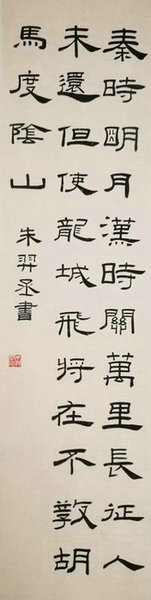 秦時明月漢時關萬里長征人
未還但使龍城飛将在不敎胡
馬度陰山
朱羿丞書